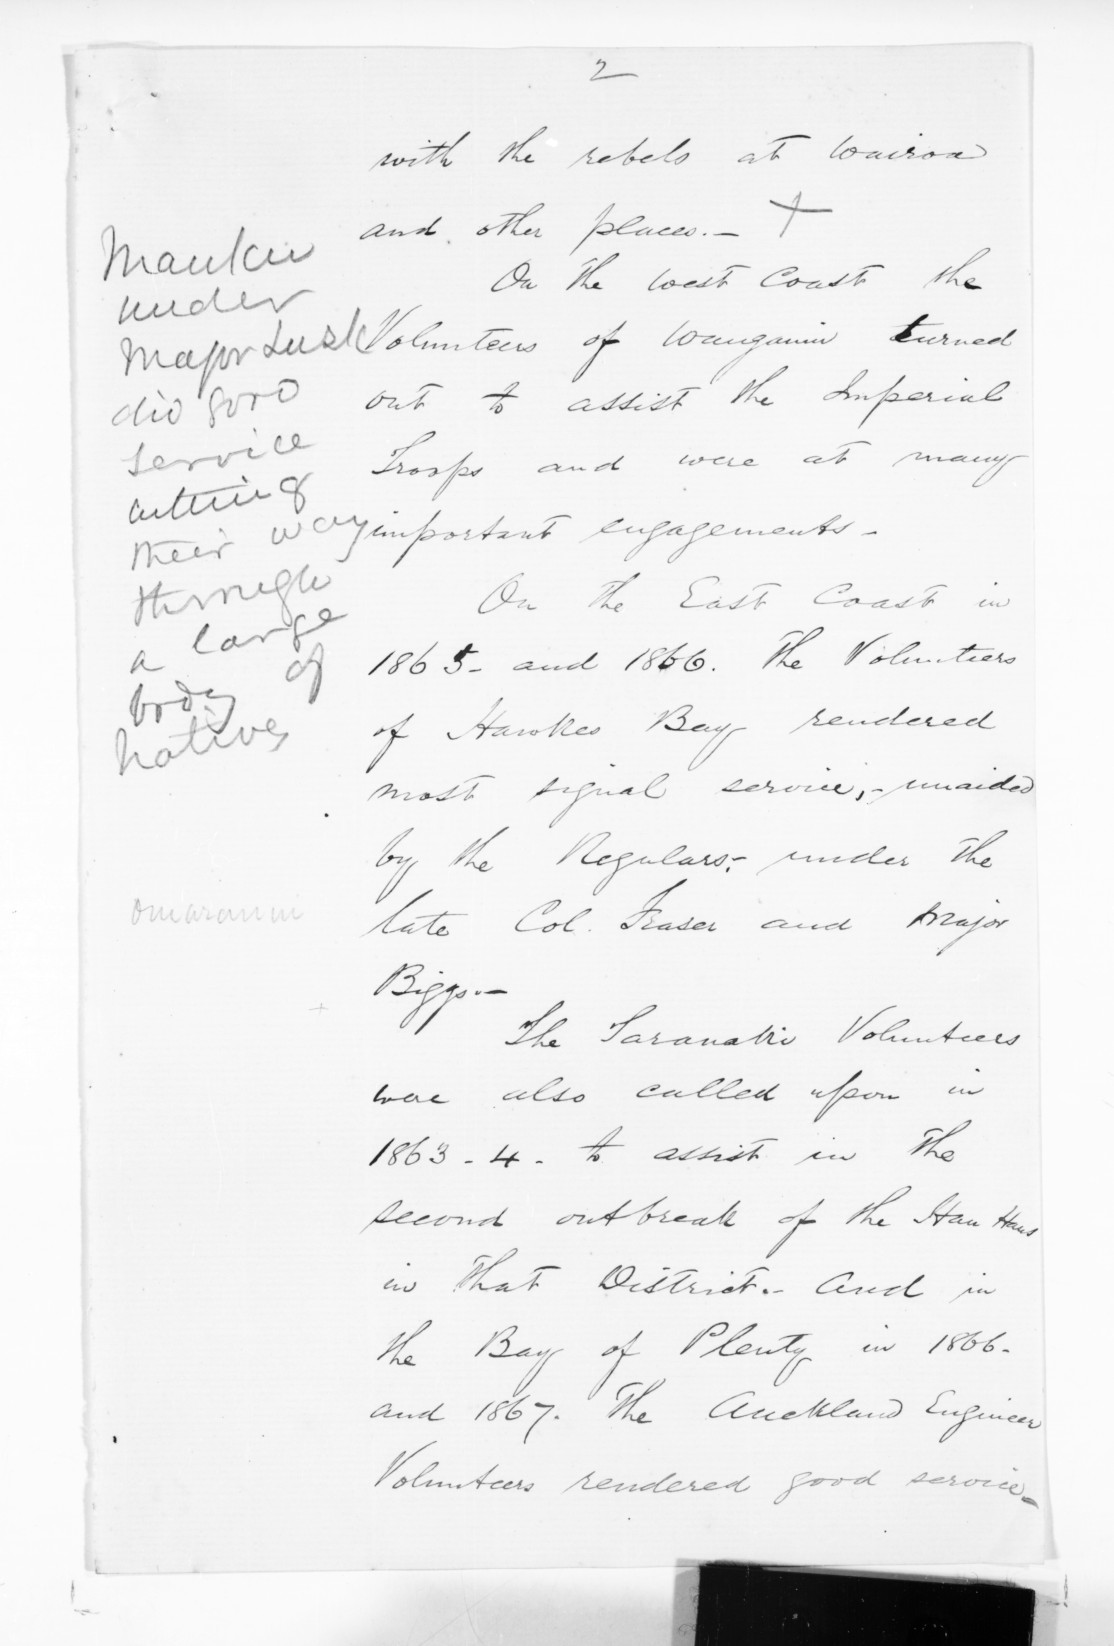 2
with the rebels at Wairoa
and other places. - X
On the West Coast the
Volunteers of Wanganui turned
out to assist the Imperial
Troops and were at many
important engagements -
On the East Coast in
1865 - and 1866. The Volunteers
of Hawkes Bay rendered
most signal service, - unaided
by the Regulars, - under the
late Col. Fraser and Major
Biggs. -
The Taranaki Volunteers
were also called upon in
1863 - 4 - to assist in the
second outbreak of the Hau Haus
in that District. - And in
the Bay of Plenty in 1866 -
and 1867. The Auckland Engineer
Volunteers rendered good service -
Mauku
under
Major Lusk
did good
service
cutting
their way
through
a large
body of
natives